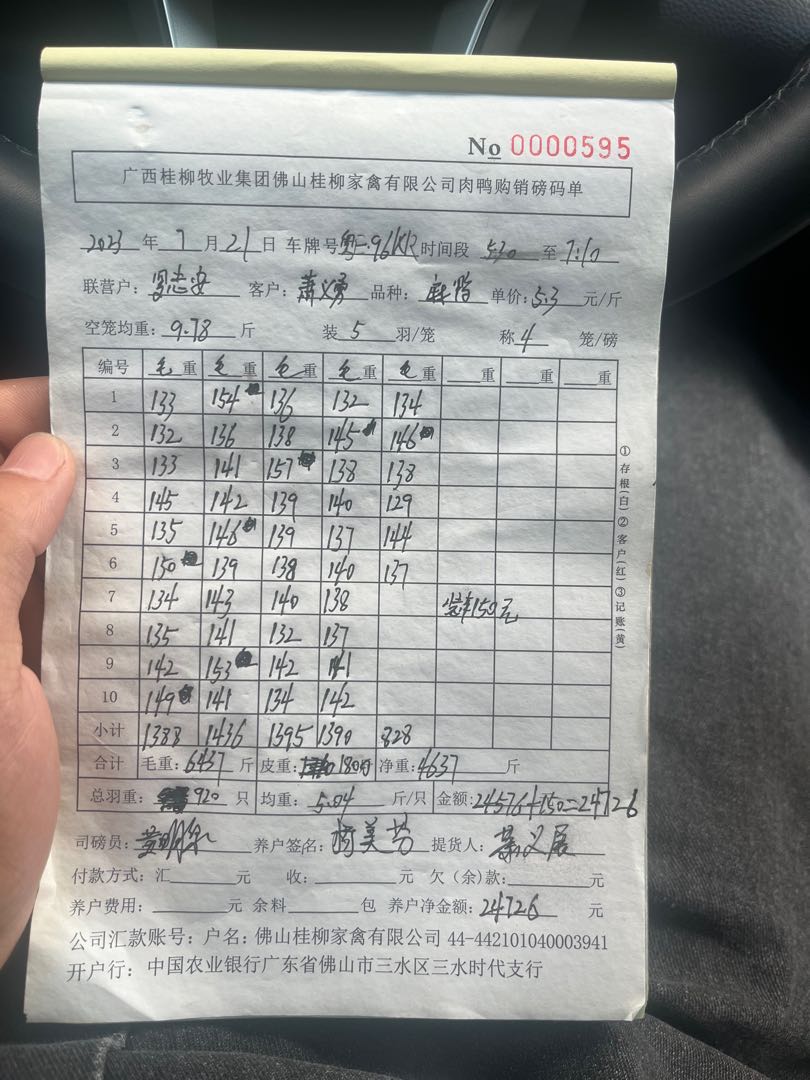 No 0000595
广西桂柳牧业集团佛山桂柳家禽有限公司肉鸭购销磅码单
2023 年 7 月 21 日 车牌号 96KR 时间段 530 至 7:10
联营户: 志安 客户: 萧义勇 品种: 单价: 5.3 元/斤
空笼均重: 9.78 斤 装 5 羽/笼 称 4 笼/磅
编号 毛重 毛重 毛重 毛重 毛重 重 重 重
1 133 154 136 132 134
2 132 136 138 145 146
3 133 141 157 138 138
4 145 142 139 140 129
5 135 146 139 137 144
6 150 139 138 140 137
7 134 143 140 138 150元
8 135 141 132 137
9 142 153 142 141
10 149 141 134 142
小计 1388 1436 1395 1390 828
合计 毛重: 6437 斤 皮重: 1800 净重: 4637 斤
总羽重: 920 只 均重: 5.04 斤/只 金额: 24576+150=24726
司磅员: 养户签名: 美芬 提货人: 萧义展
付款方式: 汇 元 收: 元 欠(余)款: 元
养户费用: 元 余料 包 养户净金额: 24726 元
公司汇款账号: 户名: 佛山桂柳家禽有限公司 44-442101040003941
开户行: 中国农业银行广东省佛山市三水区三水时代支行
①存根(白)②客户(红)③记账(黄)